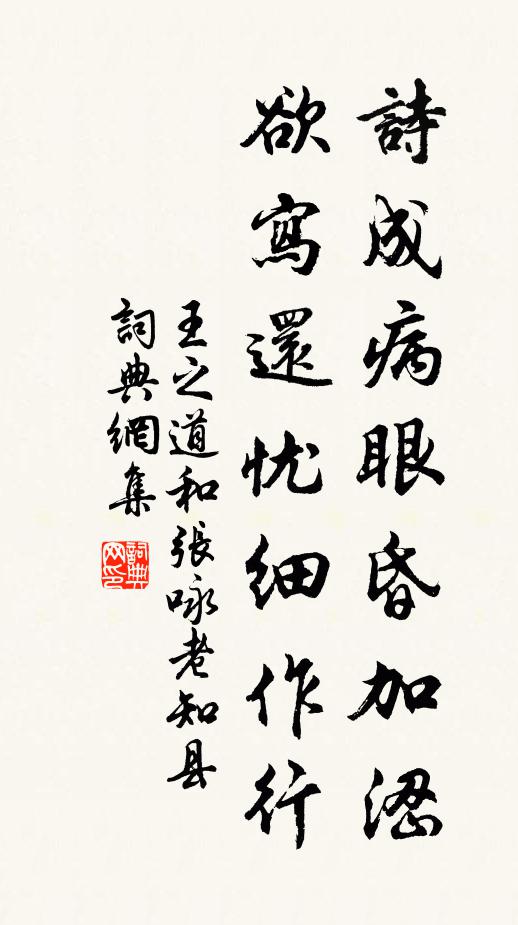 詩成病眼昏加涩
欲寫還忧細作行
王之道和張咏老知县
詞典網集
詞典网印